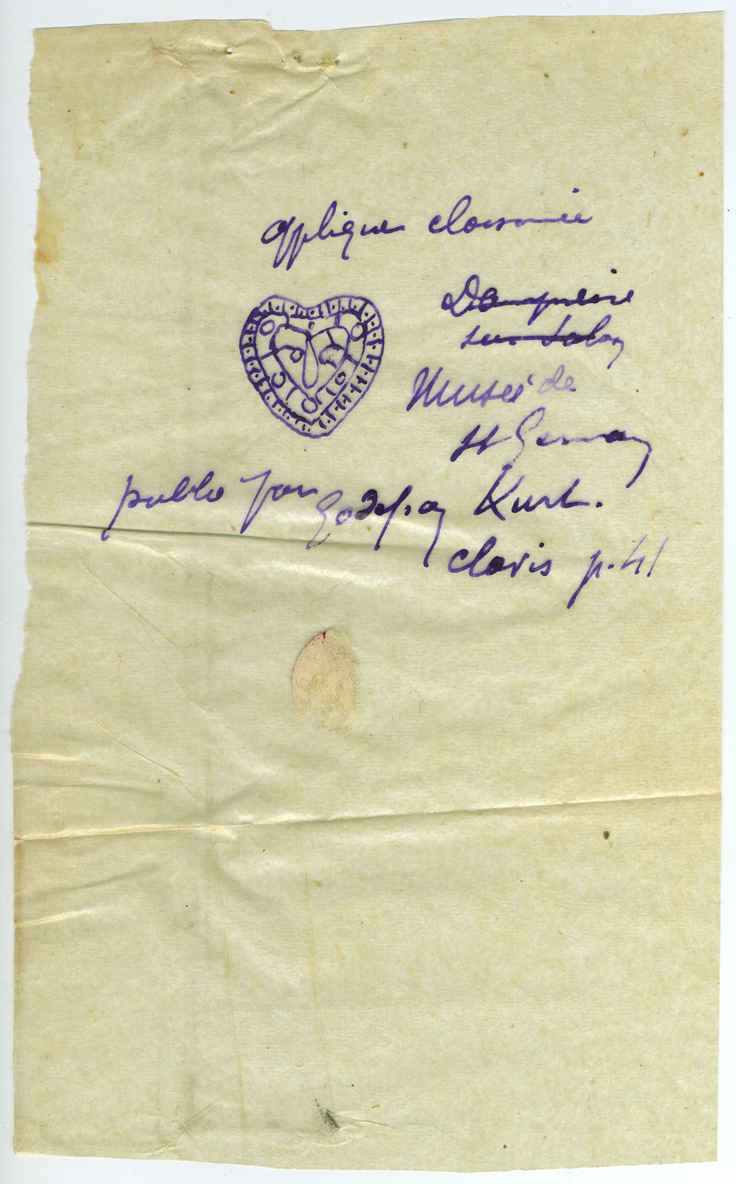 applique cloisonnée
Dampierre
sur Salon
Musée de
St Germain
publié par Godefroy Kurth.
clovis p. 41